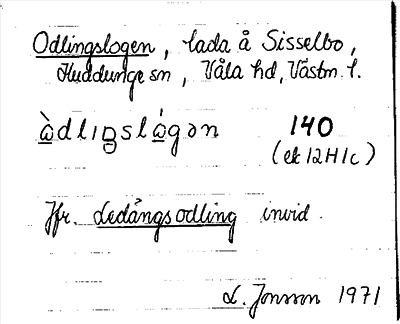 Odlingslogen, lada å Sisselbo,
Huddunge sn, Våla hd, Västm. l.
ὼdlıŋslώgən 140
(ek 12H1c)
Jfr. Ledångsodling invid.
L. Jonsson 1971